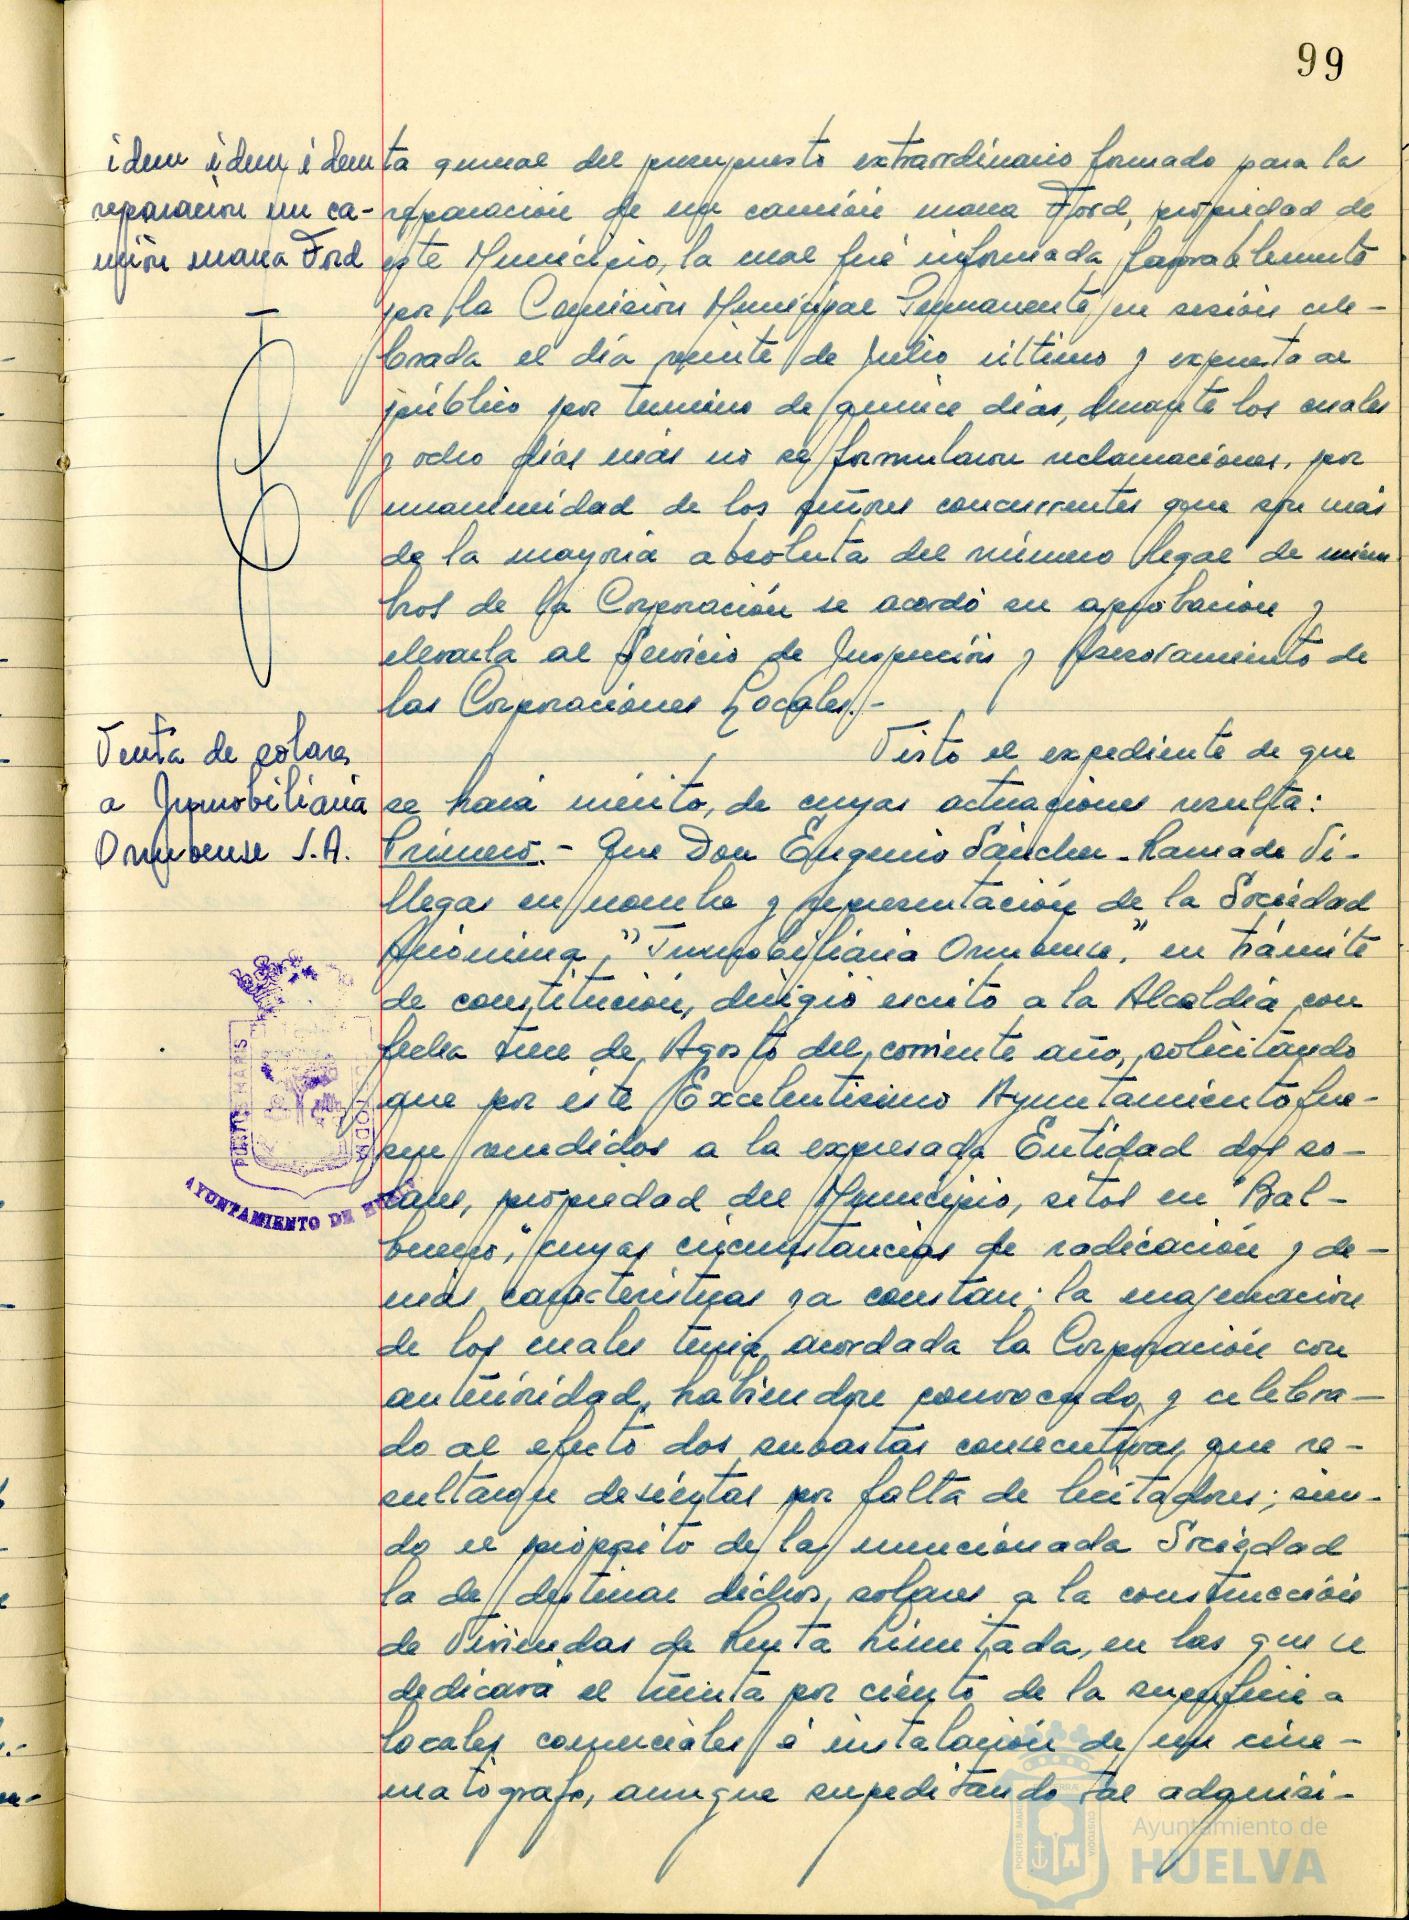 99
idem idem idem
reparación un ca-
mión marca Ford
ta general del presupuesto extraordinario formado para la
reparación de un camión marca Ford, propiedad de
este Municipio, la cual fué informada favorablemente
por la Comisión Municipal Permanente en sesión cele-
brada el día veinte de Julio último y expuesta al
público por termino de quince días, durante los cuales
y ocho días más no se formularon reclamaciones, por
unanimidad de los señores concurrentes que son más
de la mayoría absoluta del número legal de miem-
bros de la Corporación se acordó su aprobación y
elevarla al Servicio de Inspección y Asesoramiento de
las Corporaciones Locales.-
Venta de solares
a Inmobiliaria
Onubense S.A.
Visto el expediente de que
se hará mérito, de cuyas actuaciones resulta:
Primero.- Que Don Eugenio Sánchez-Ramade Vi-
llegas en nombre y representación de la Sociedad
Anónima, "Inmobiliaria Onubense", en trámite
de constitución, dirigió escrito a la Alcaldía con
fecha trece de Agosto del corriente año, solicitando
que por éste Excelentísimo Ayuntamiento fue-
sen vendidos a la expresada Entidad dos so-
lares, propiedad del Municipio, sitos en "Bal-
bueno", cuyas circunstancias de radicación y de-
más características ya constan; la enajenación
de los cuales tenía acordada la Corporación con
anterioridad, habiendose convocado y celebra-
do al efecto dos subastas consecutivas que re-
sultaron desiertas por falta de licitadores; sien-
do el propósito de la mencionada Sociedad
la de destinar dichos solares a la construcción
de Viviendas de Renta Limitada, en las que se
dedicará el treinta por ciento de la superficie a
locales comerciales é instalación de un cine-
matógrafo, aunque supeditando tal adquisi-
PORTUS MARIS
CUSTODIA
AYUNTAMIENTO DE HUELVA
PORTUS MARIS
TERRAE
CUSTODIA
Ayuntamiento de
HUELVA